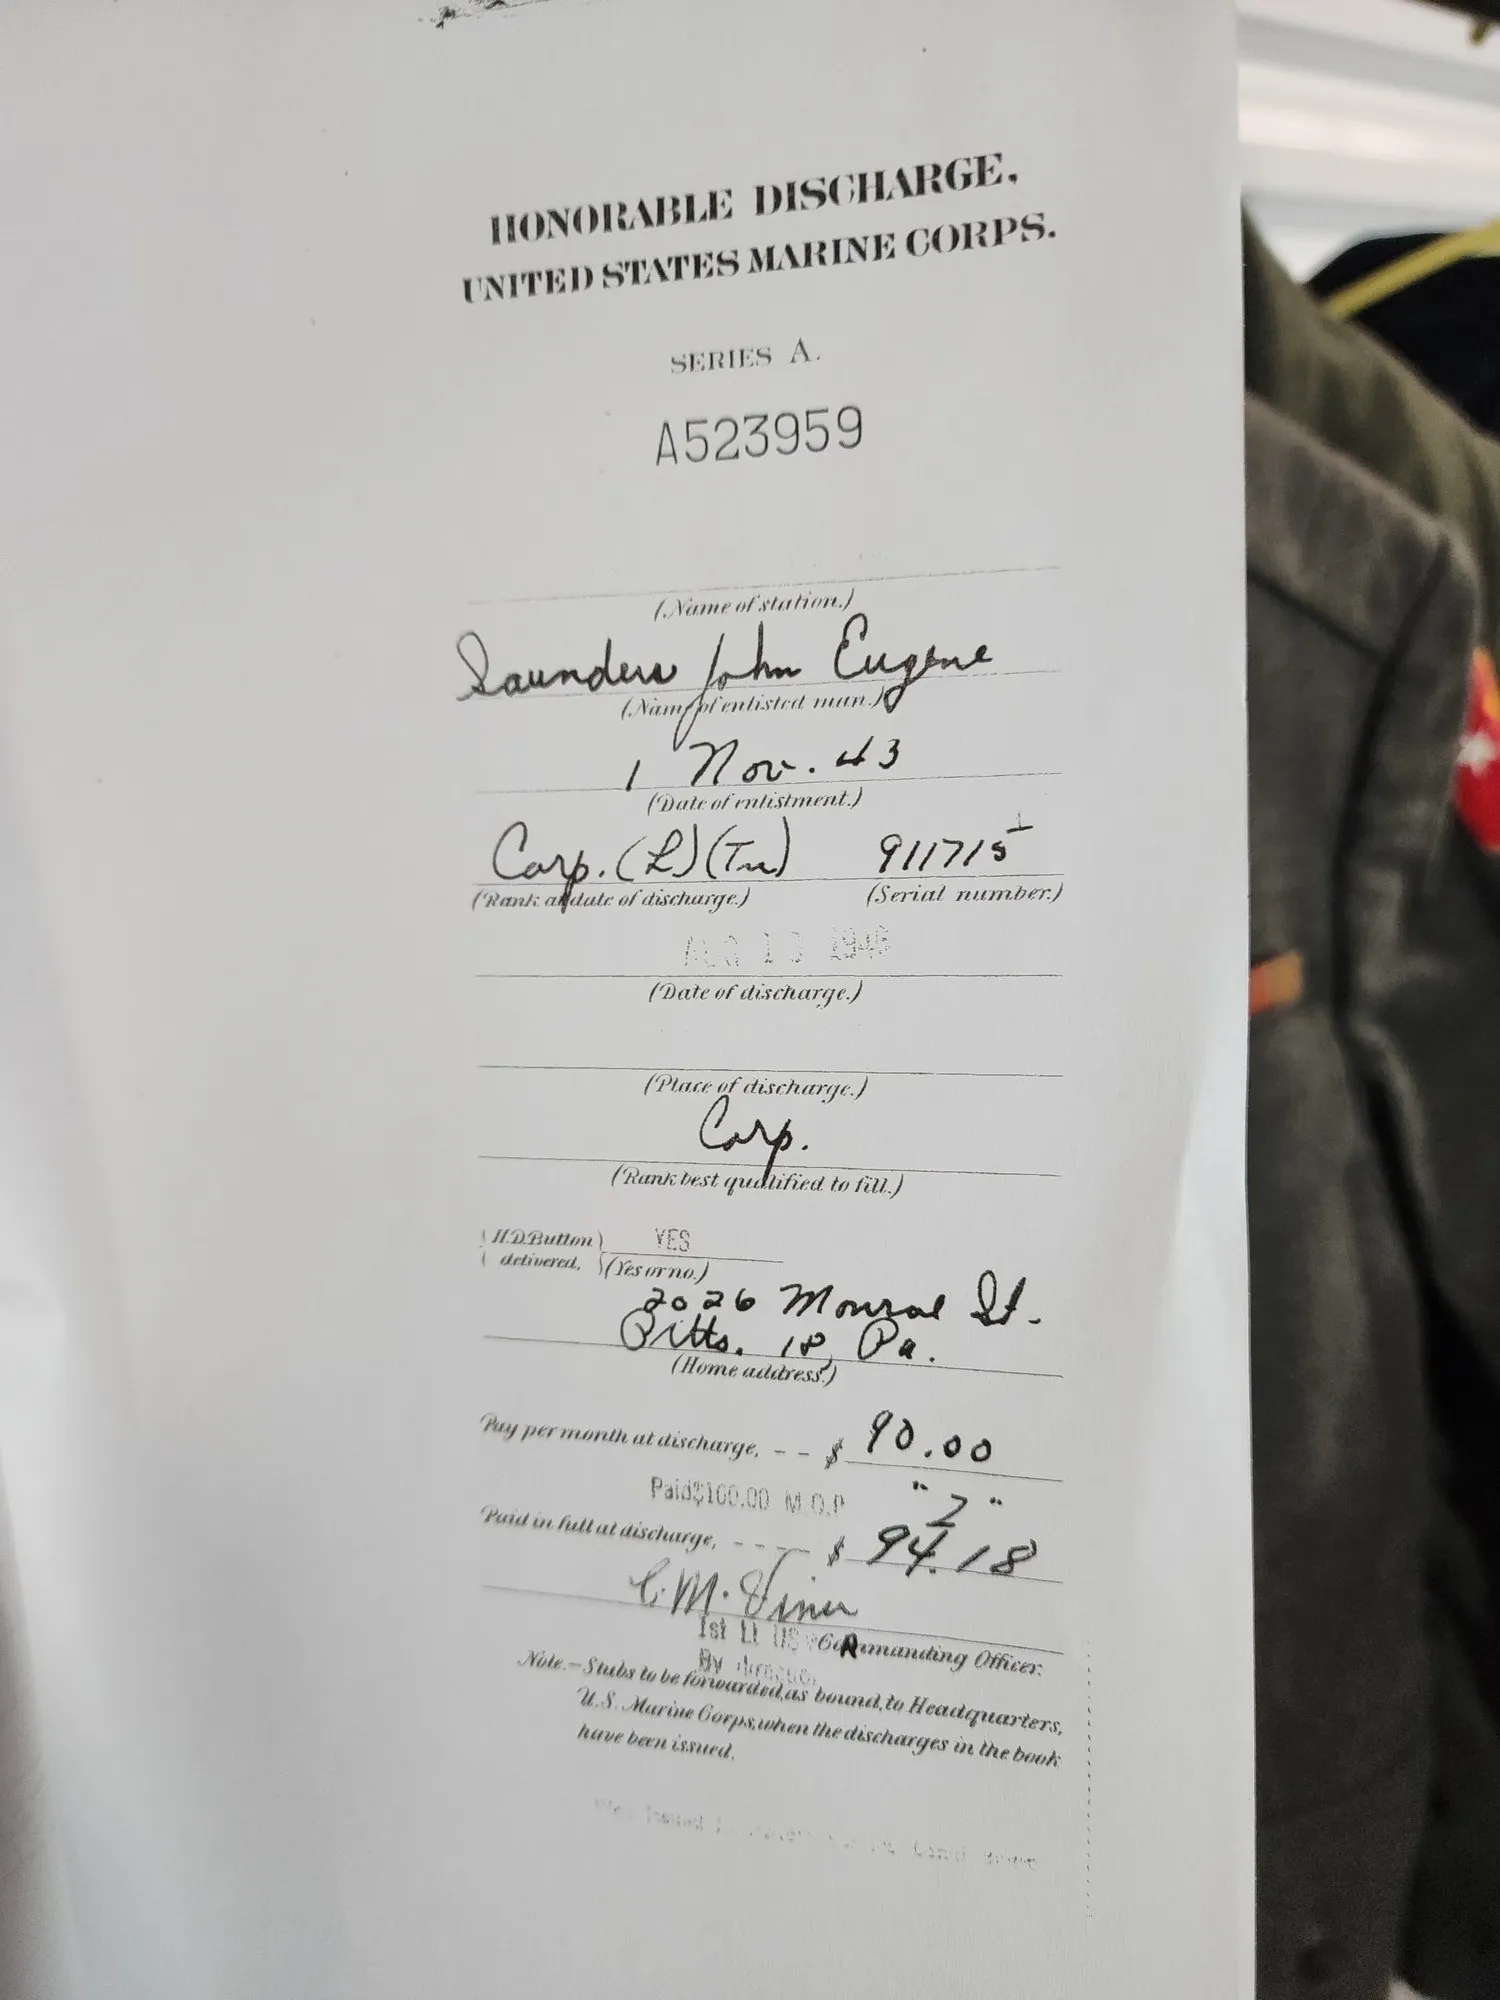 HONORABLE DISCHARGE,
UNITED STATES MARINE CORPS.
SERIES A.
A523959
(Name of station.)
Saunders John Eugene
(Name of enlisted man.)
1 Nov. 43
(Date of enlistment.)
Corp. (L) (Tw) 911715
(Rank at date of discharge.) (Serial number.)
AUG 13 1946
(Date of discharge.)
(Place of discharge.)
Corp.
(Rank best qualified to fill.)
H.D. Button YES
delivered, (Yes or no.)
2026 Monroe St.
Pitts. 18, Pa.
(Home address.)
Pay per month at discharge, -- $ 90.00
Paid $100.00 M.O.P "2"
Paid in full at discharge, ---- $ 94.18
C. M. Viner
1st Lt US CR
Commanding Officer.
By direction
Note.—Stubs to be forwarded, as bound, to Headquarters,
U.S. Marine Corps, when the discharges in the book
have been issued.
Issued